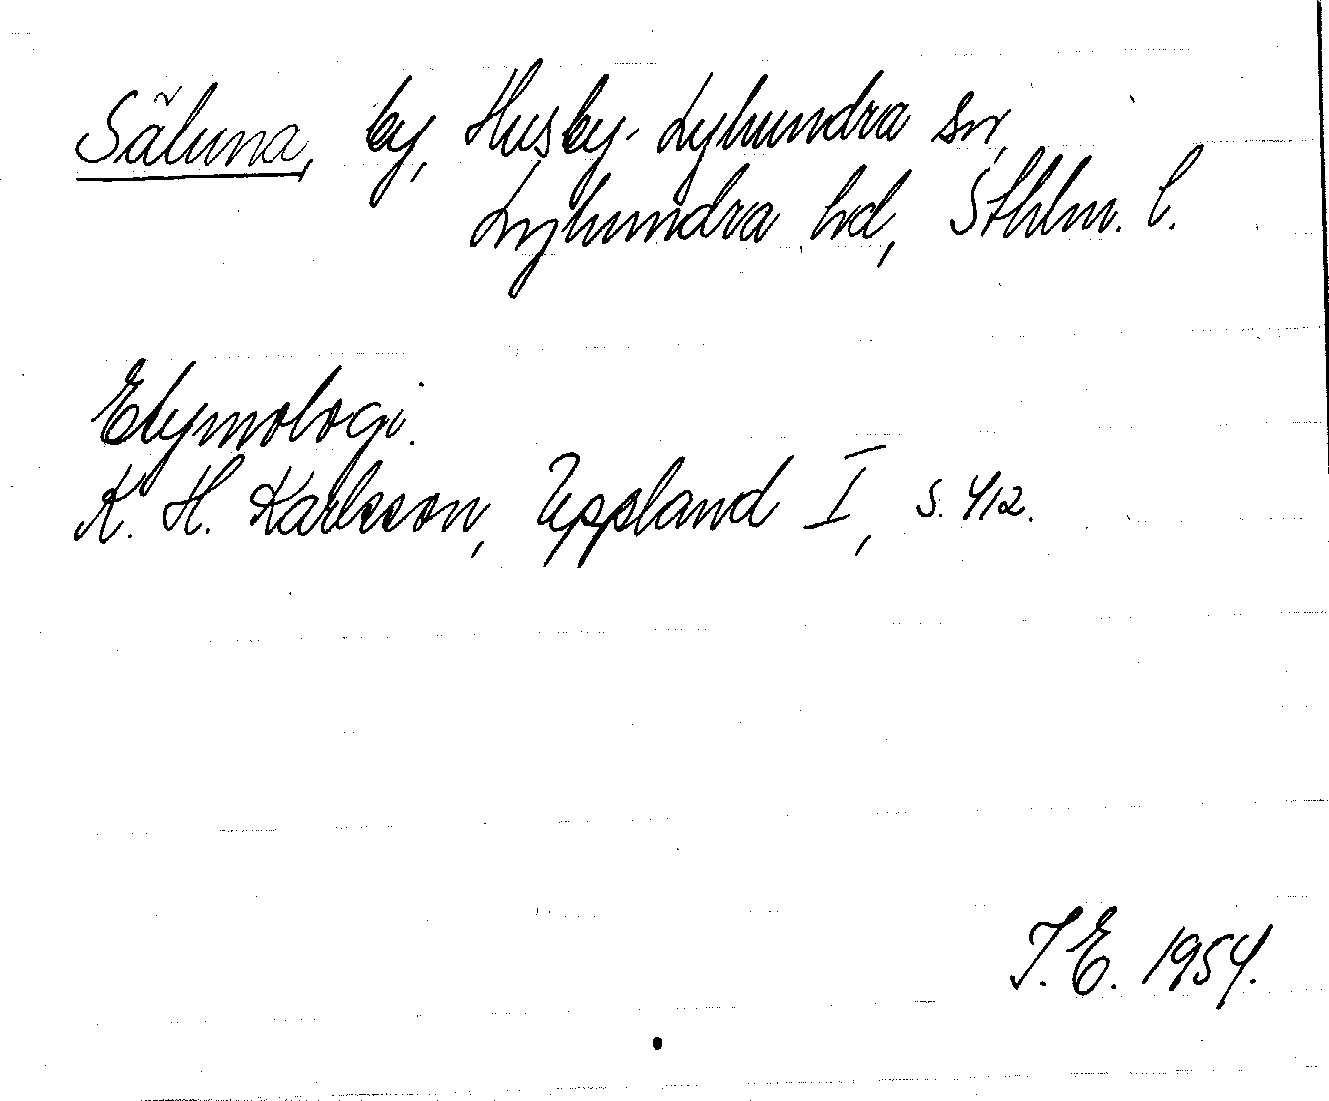 Säluna, by, Husby-Lyhundra sn,
Lyhundra hd, Sthlm. l.
Etymologi.
K. H. Karlsson, Uppland I, s. 412.
J. E. 1954.